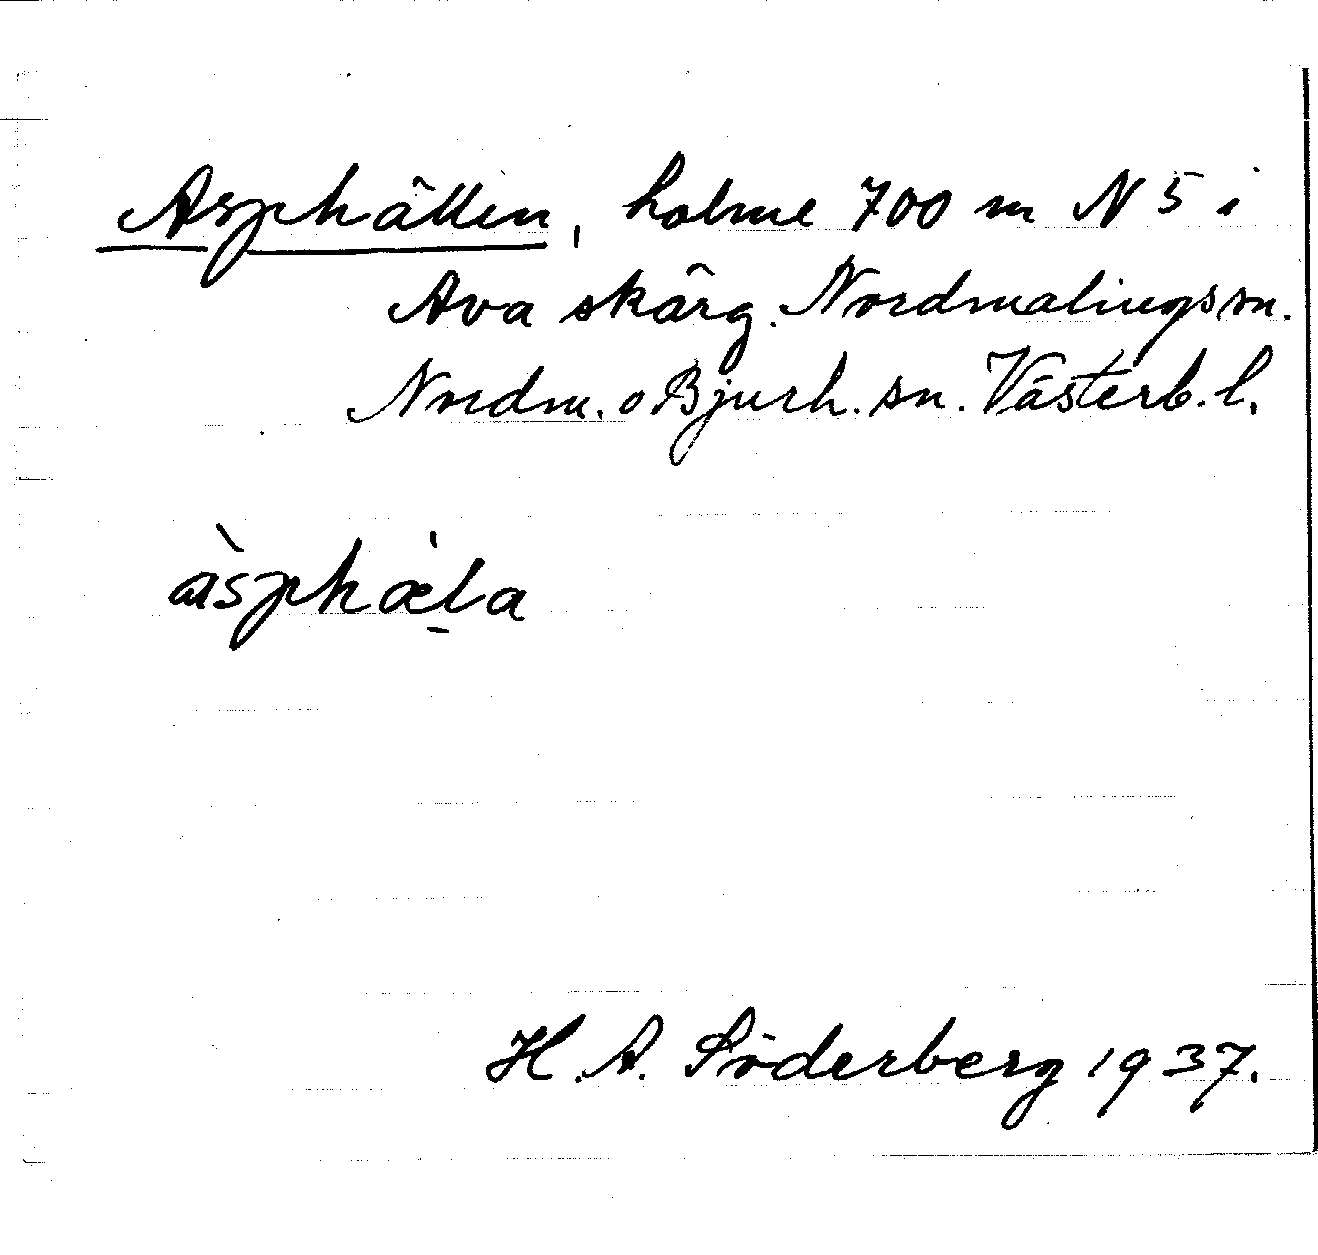 Asphällen, holme 700 m N 5 i
Ava skärg. Nordmalings sn.
Nordm. o Bjurh. sn. Västerb. l.
àsphæ̀l̠a
H. A. Söderberg 1937.